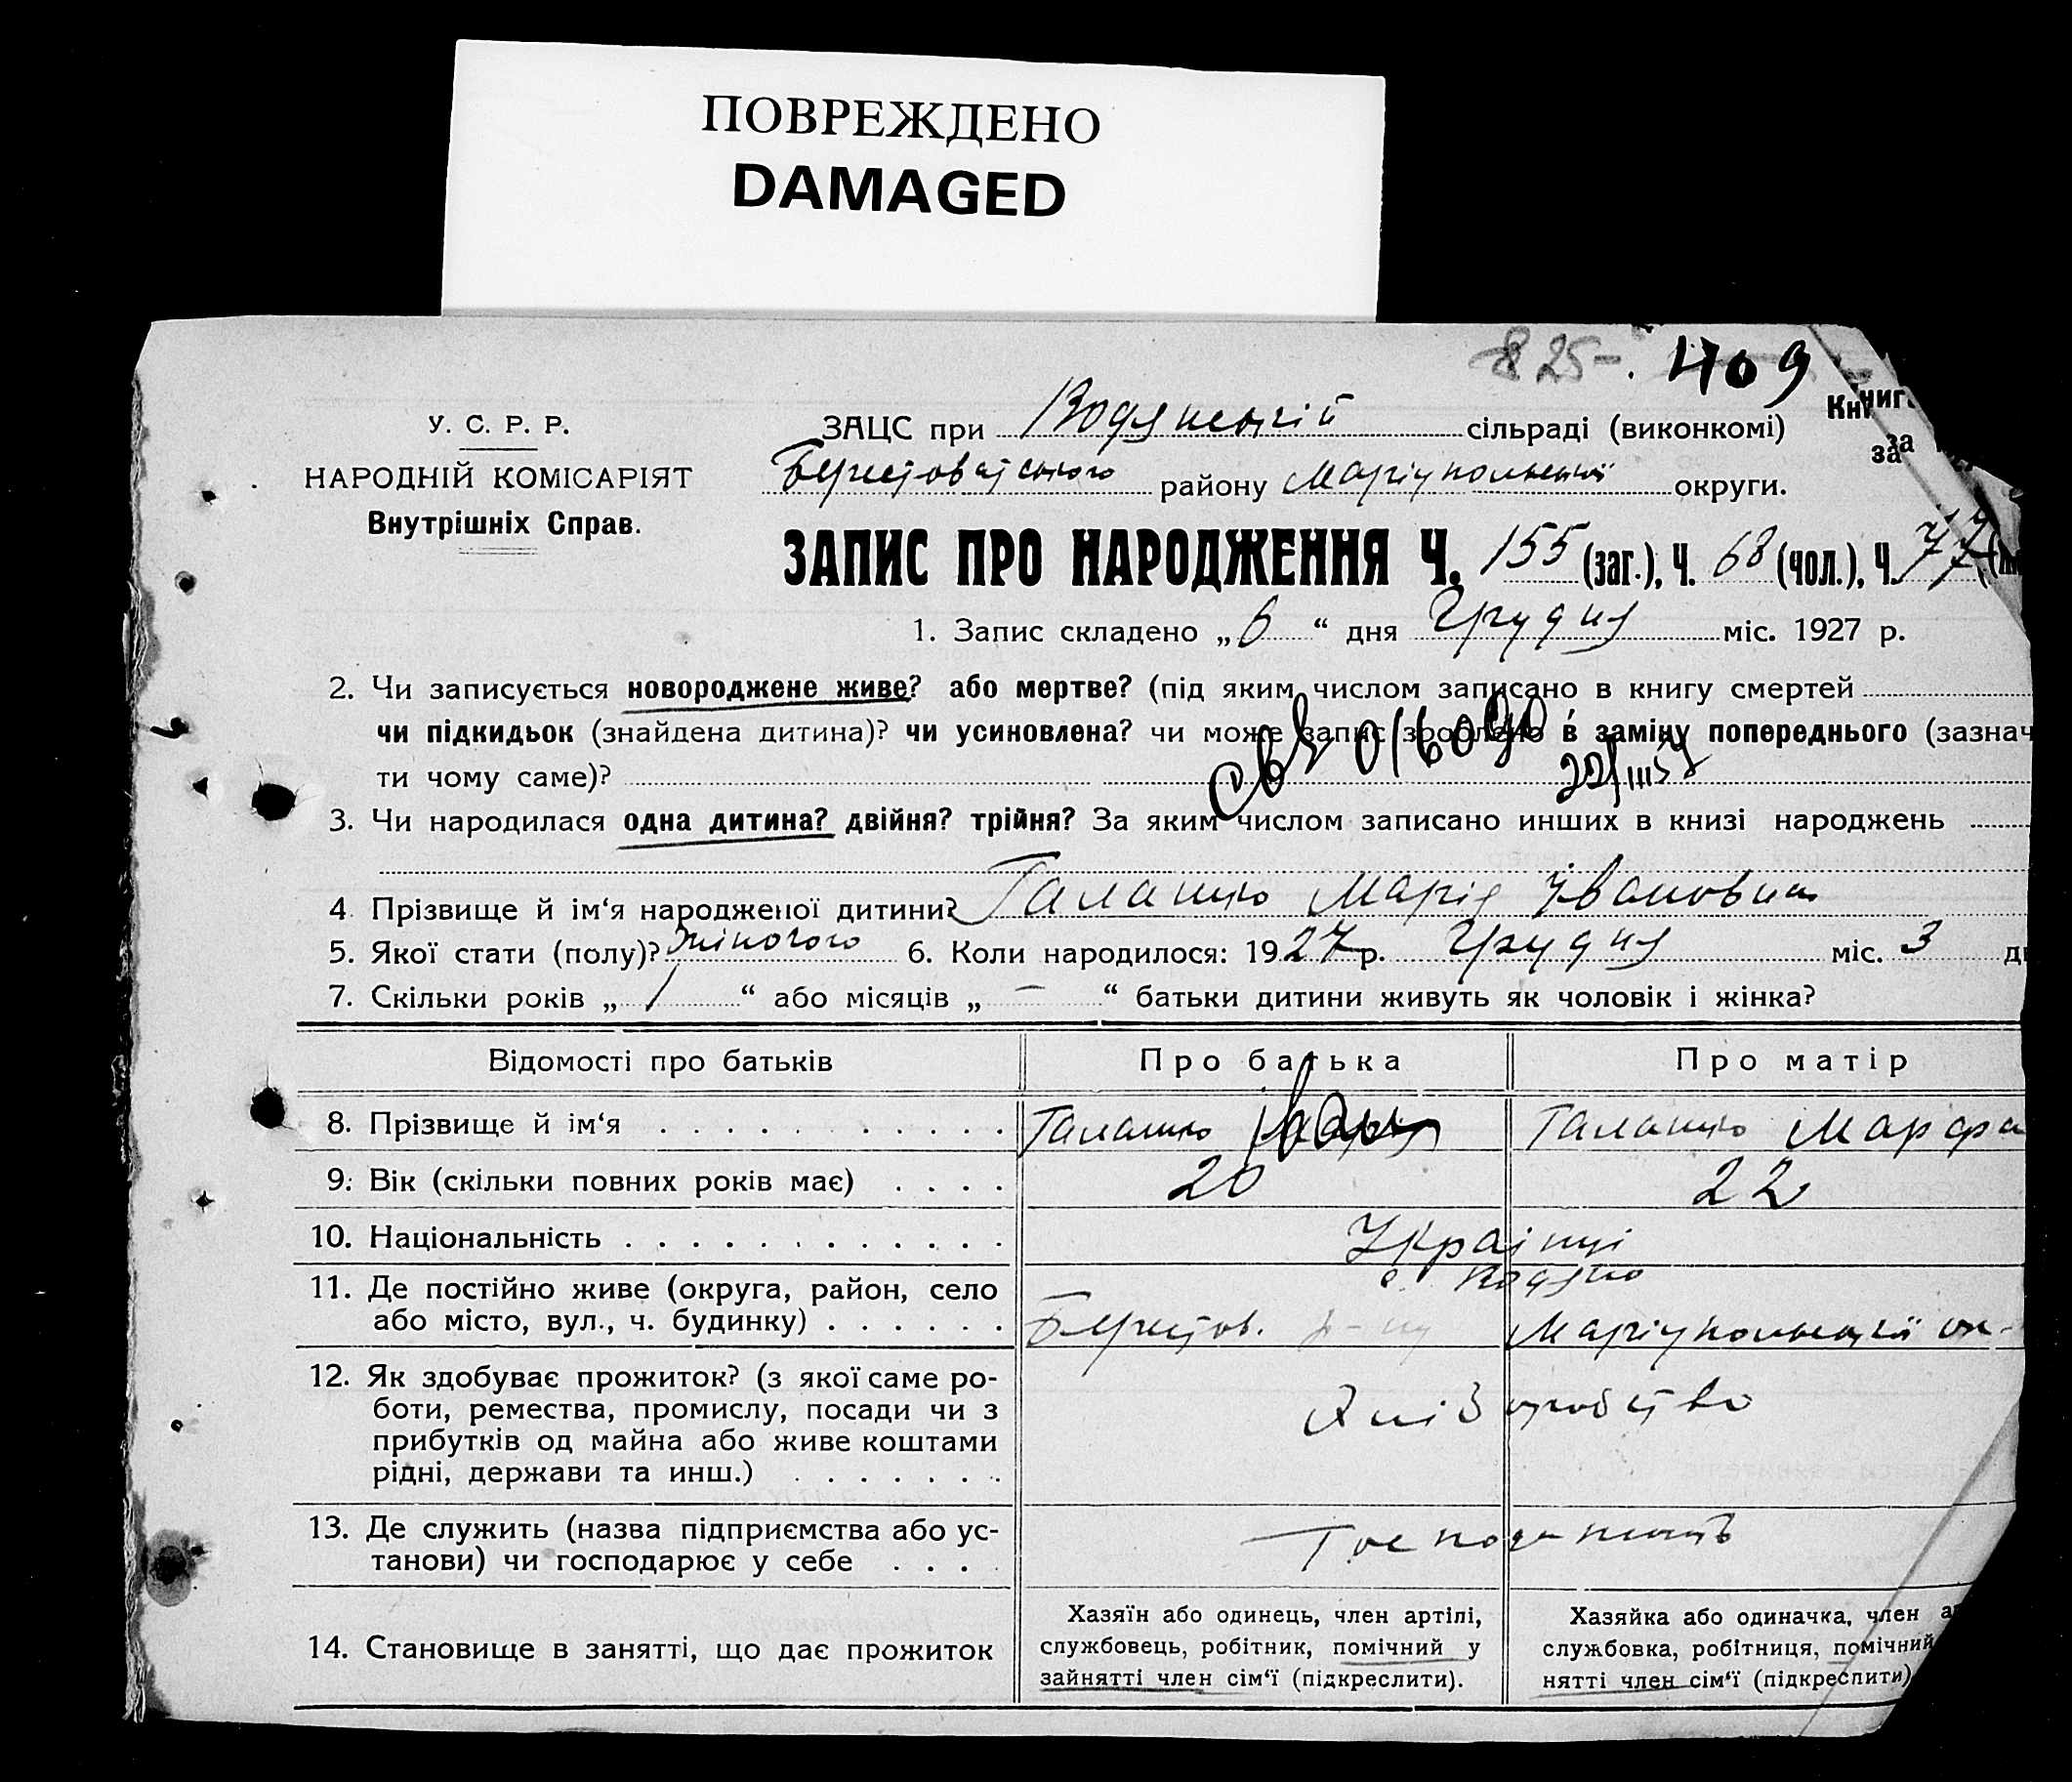 ПОВРЕЖДЕНО
DAMAGED
825 409
У. С. Р. Р.
НАРОДНІЙ КОМІСАРІЯТ
Внутрішніх Справ.
ЗАЦС при Водянській сільраді (виконкомі)
Берестоватського району Маріупольської округи.
ЗАПИС ПРО НАРОДЖЕННЯ Ч. 155 (заг.), Ч. 68 (чол.), Ч. 77
1. Запис складено „ 6 “ дня Грудня міс. 1927 р.
2. Чи записується новороджене живе? або мертве? (під яким числом записано в книгу смертей
чи підкидьок (знайдена дитина)? чи усиновлена? чи може запис зроблено в заміну попереднього (зазнач
ти чому саме)?
3. Чи народилася одна дитина? двійня? трійня? За яким числом записано инших в книзі народжень
4. Прізвище й ім‘я народженої дитини? Галашко Марія Ивановна
5. Якої стати (полу)? жіночого 6. Коли народилося: 1927 р. Грудня міс. 3
7. Скільки років „ 1 “ або місяців „ — “ батьки дитини живуть як чоловік і жінка?
Відомості про батьків Про батька Про матір
8. Прізвище й ім‘я Галашко Галашко Марфа
9. Вік (скільки повних років має) 20 22
10. Національність Українці
11. Де постійно живе (округа, район, село с. Водяно
або місто, вул., ч. будинку) Берестов. р-ну Маріупольської ок-
12. Як здобуває прожиток? (з якої саме ро-
боти, ремества, промислу, посади чи з
прибутків од майна або живе коштами
рідні, держави та инш.) Хліборобство
13. Де служить (назва підприємства або ус-
танови) чи господарює у себе
14. Становище в занятті, що дає прожиток
Хазяїн або одинець, член артілі,
службовець, робітник, помічний у
зайнятті член сім‘ї (підкреслити).
Хазяйка або одиначка, член
службовка, робітниця, помічний
нятті член сім‘ї (підкреслити)